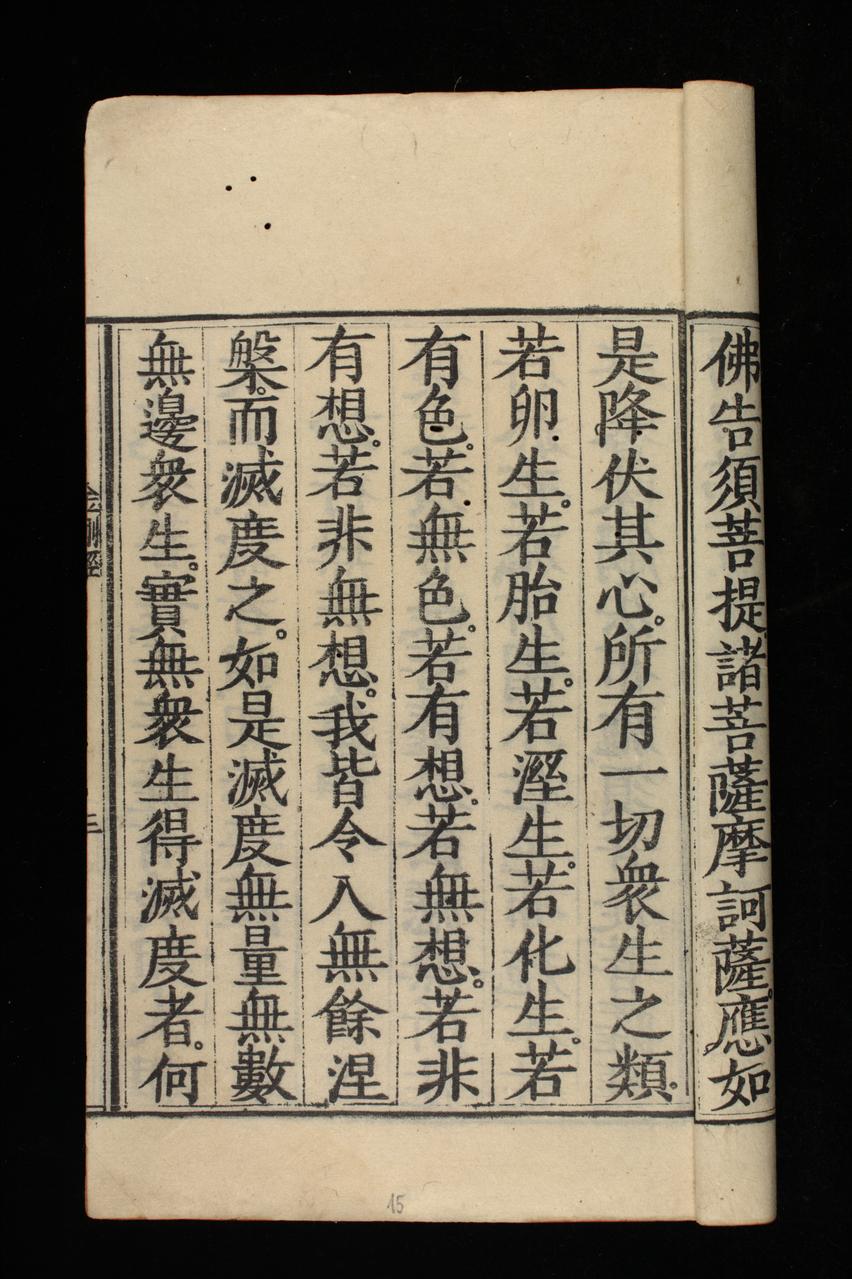 佛告須菩提。諸菩薩摩訶薩。應如
是降伏其心。所有一切衆生之類。
若卵生。若胎生。若溼生。若化生。若
有色。若無色。若有想。若無想。若非
有想。若非無想。我皆令入無餘涅
槃。而滅度之。如是滅度無量無數
無邊衆生。實無衆生得滅度者。何
金剛經
15